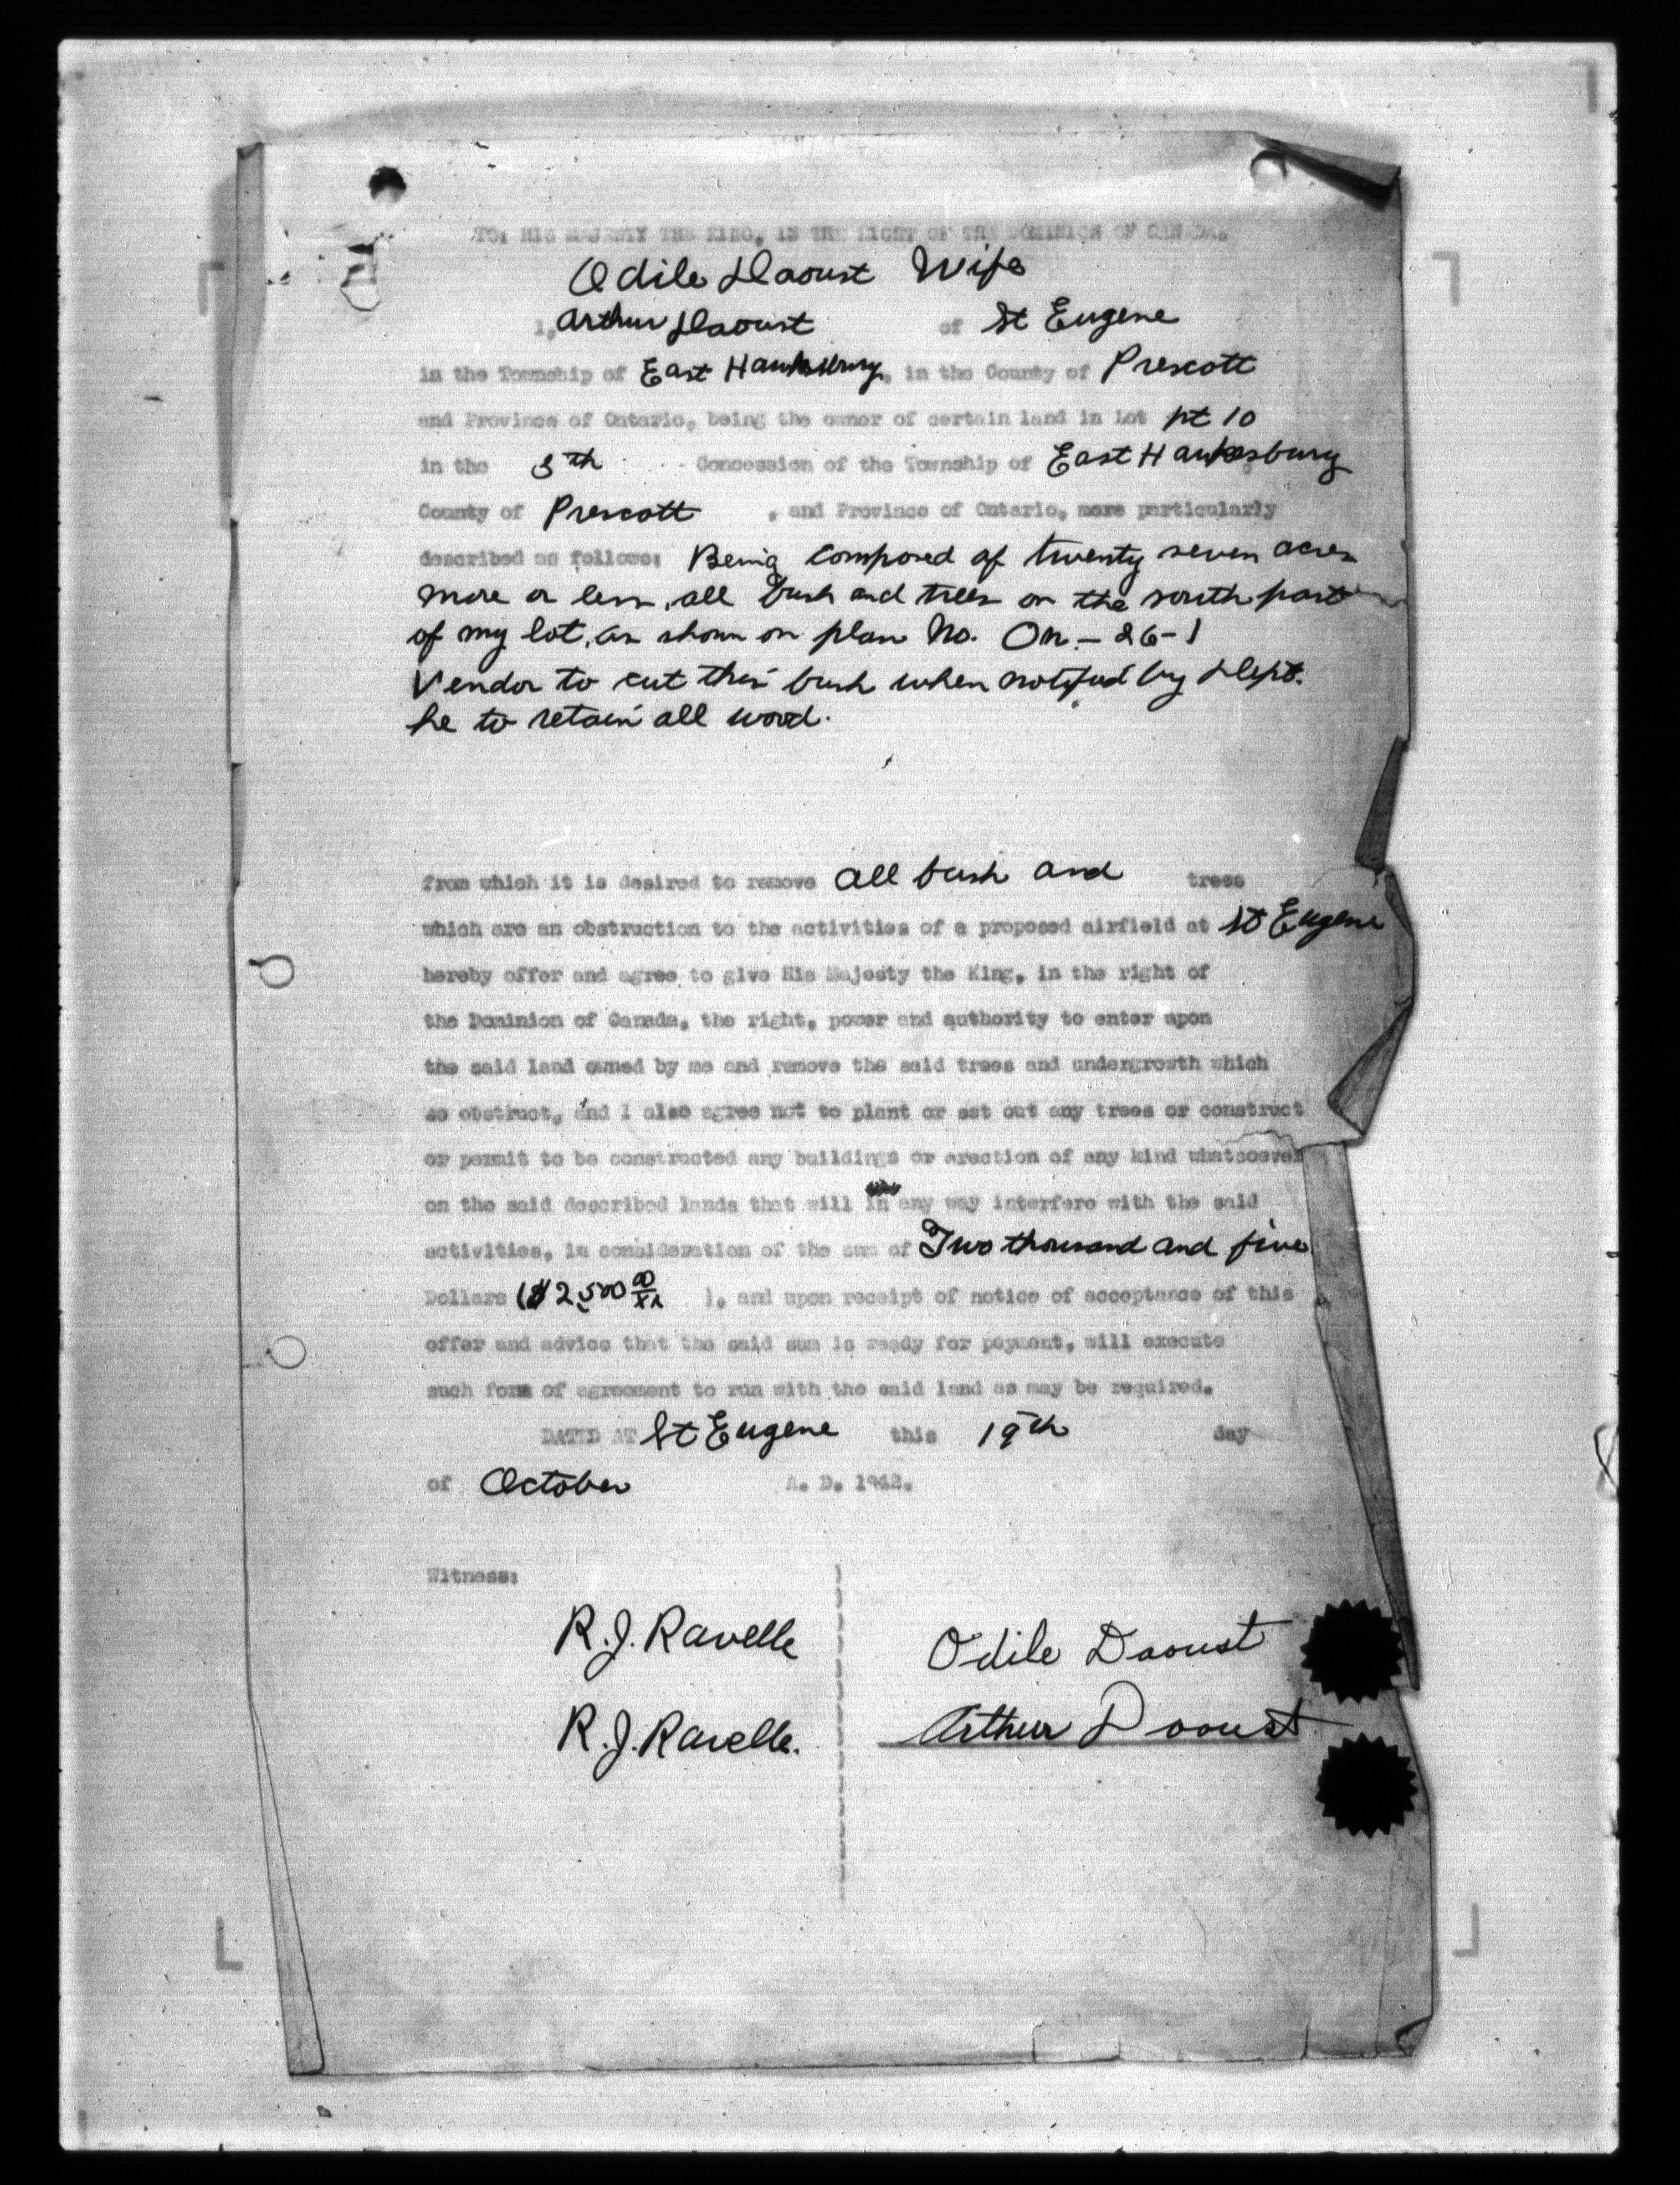 TO: HIS MAJESTY THE KING, IN THE RIGHT OF THE DOMINION OF CANADA.
Odile Daoust Wife
I, Arthur Daoust of St Eugene
in the Township of East Hawksbury, in the County of Prescott
and Province of Ontario, being the owner of certain land in Lot pt 10
in the 5th Concession of the Township of East Hawkesbury
County of Prescott , and Province of Ontario, more particularly
described as follows: Being composed of twenty seven acres
more or less, all bush and trees on the south part
of my lot, as shown on plan No. On - 26-1
Vendor to cut this bush when notified by Dept.
he to retain all wood.
from which it is desired to remove all bush and trees
which are an obstruction to the activities of a proposed airfield at St Eugene
hereby offer and agree to give His Majesty the King, in the right of
the Dominion of Canada, the right, power and authority to enter upon
the said land owned by me and remove the said trees and undergrowth which
so obstruct, and I also agree not to plant or set out any trees or construct
or permit to be constructed any buildings or erection of any kind whatsoever
on the said described lands that will in any way interfere with the said
activities, in consideration of the sum of Two thousand and five
Dollars ($2,500 00/xx ), and upon receipt of notice of acceptance of this
offer and advice that the said sum is ready for payment, will execute
such form of agreement to run with the said land as may be required.
DATED AT St Eugene this 19th day
of October A. D. 1942.
Witness:
R.J. Ravelle
Odile Daoust
R.J. Ravelle.
Arthur Daoust